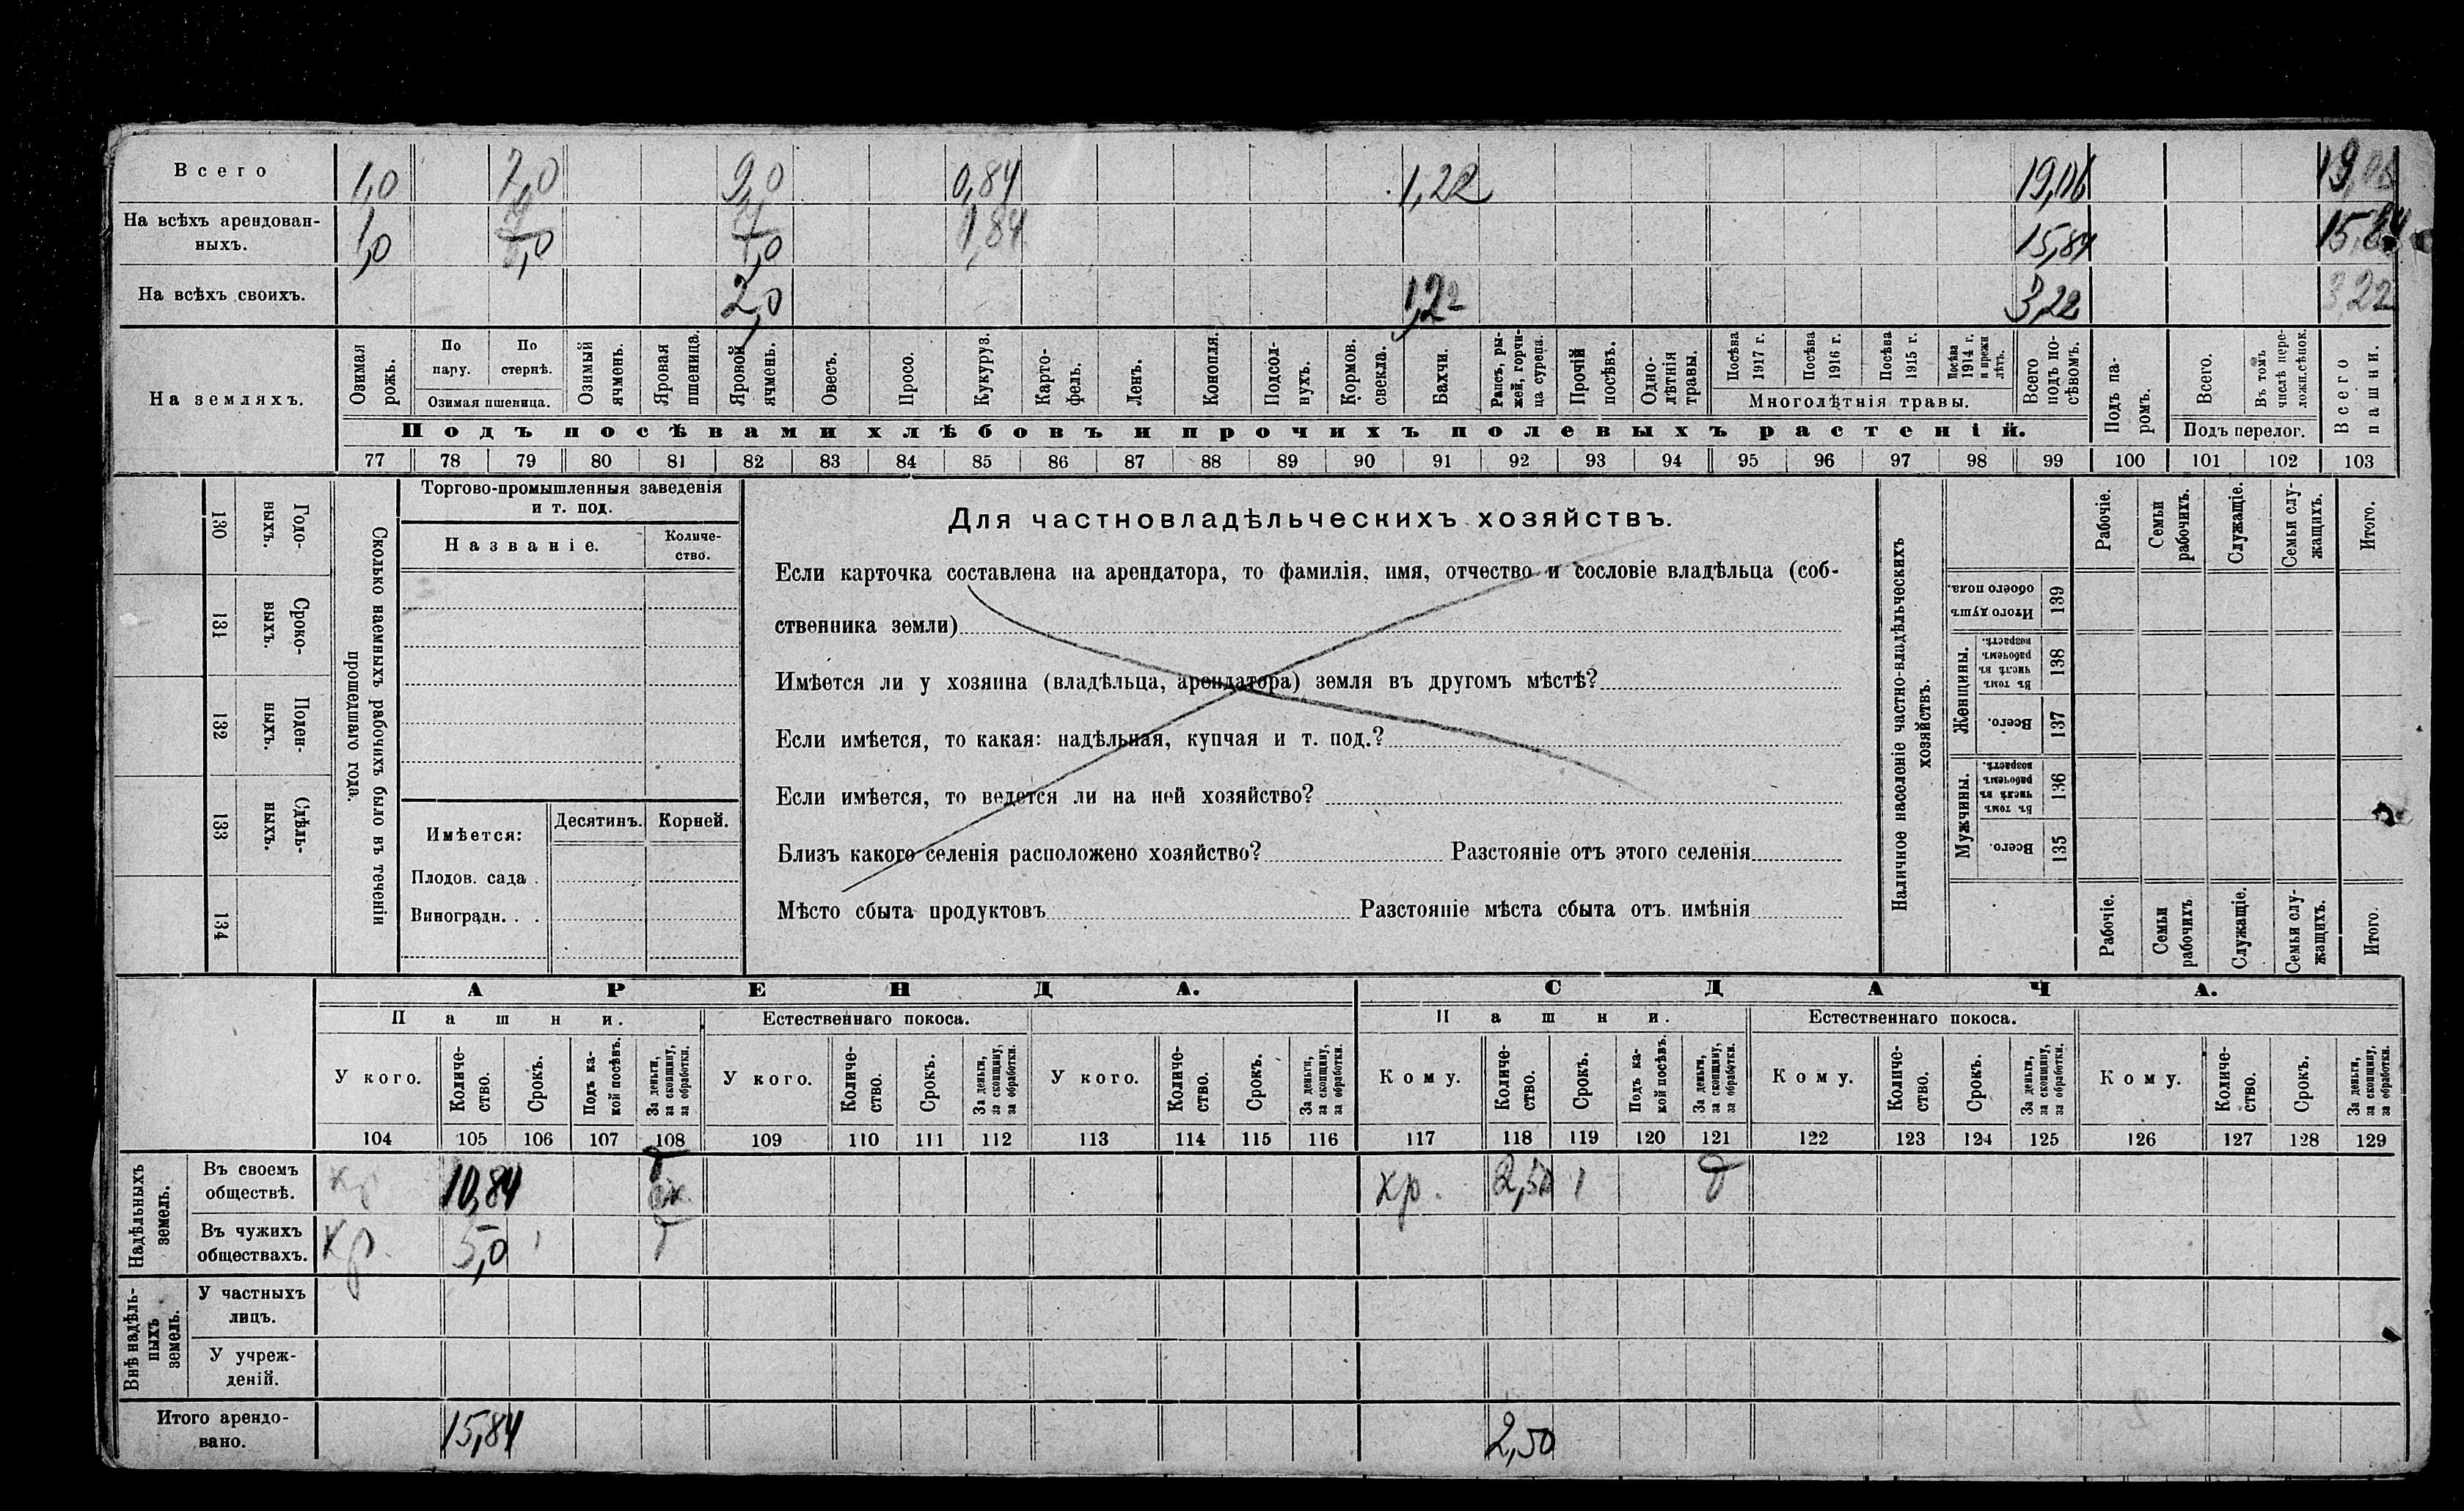 Всего 1,0 7,0 9,0 0,84 1,22 19,06 19,06
На всѣхъ арендован-
ныхъ. 1,0 7,0 1,84 15,84 15,84
На всѣхъ своихъ. 2,0 1,22 3,22 3,22
На земляхъ.
Озимая рожь.
По пару.
По стернѣ.
Озимая пшеница.
Озимый ячмень.
Яровая пшеница.
Яровой ячмень.
Овесъ.
Просо.
Кукуруз.
Карто-
фель.
Ленъ.
Конопля.
Подсол-
нухъ.
Кормов. свекла.
Бахчи.
Рапсъ, ры-
жей, горчи-
ца сурепа.
Прочій посѣвъ.
Одно-
лѣтнія травы.
Посѣва 1917 г.
Посѣва 1916 г.
Посѣва 1915 г.
Посѣва 1914 г. и прежн лѣтъ.
Многолѣтнія травы.
Всего подъ по-
сѣвомъ.
Подъ па-
ромъ.
Всего.
Въ томъ числѣ пере-
ложн.сѣнок.
Подъ перелог.
Всего пашни.
Подъ посѣвами хлѣбовъ и прочихъ полевыхъ растеній.
77 78 79 80 81 82 83 84 85 86 87 88 89 90 91 92 93 94 95 96 97 98 99 100 101 102 103
130 Годо-
выхъ.
131 Сроко-
выхъ.
132 Поден-
ныхъ.
133 Сдѣль-
ныхъ.
134
Сколько наемныхъ рабочихъ было въ теченіи
прошедшаго года.
Торгово-промышленныя заведенія
и т. под.
Названіе.
Количе-
ство.
Имѣется:
Десятинъ. Корней.
Плодов. сада.
Виноградн. . .
Для частновладѣльческихъ хозяйствъ.
Если карточка составлена на арендатора, то фамилія, имя, отчество и сословіе владѣльца (соб-
ственника земли)
Имѣется ли у хозяина (владѣльца, арендатора) земля въ другомъ мѣстѣ?
Если имѣется, то какая: надѣльная, купчая и т. под.?
Если имѣется, то ведется ли на ней хозяйство?
Близъ какого селенія расположено хозяйство? Разстояніе отъ этого селенія
Мѣсто сбыта продуктовъ Разстояніе мѣста сбыта отъ имѣнія
Наличное населеніе частно-владѣльческихъ
хозяйствъ.
Рабочіе.
Семьи рабочихъ.
Служащіе.
Семьи слу-
жащихъ.
Итого.
Итого душъ обоего пола. 139
Женщины.
Въ томъ числѣ въ рабочемъ возрастѣ. 138
Всего. 137
Мужчины.
Въ томъ числѣ въ рабочемъ возрастѣ. 136
Всего. 135
Рабочіе.
Семьи рабочихъ
Служащіе.
Семьи слу-
жащихъ.
Итого.
АРЕНДА. СДАЧА.
Пашни. Естественнаго покоса. Пашни. Естественнаго покоса.
У кого.
Количе-
ство.
Срокъ.
Подъ ка-
кой посѣвъ.
За деньги, за скопщину, за обработки.
У кого.
Количе-
ство.
Срокъ.
За деньги, за скопщину, за обработки.
У кого.
Количе-
ство.
Срокъ.
За деньги, за скопщину, за обработки.
Кому.
Количе-
ство.
Срокъ.
Подъ ка-
кой посѣвъ.
За деньги, за скопщину, за обработки.
Кому.
Количе-
ство.
Срокъ.
За деньги, за скопщину, за обработки.
Кому.
Количе-
ство.
Срокъ.
За деньги, за скопщину, за обработки.
104 105 106 107 108 109 110 111 112 113 114 115 116 117 118 119 120 121 122 123 124 125 126 127 128 129
Надѣльныхъ земель.
Въ своемъ
обществѣ. кр. 10,84 кр. 2,50 1 д
Въ чужихъ
обществахъ. кр. 5,0
Внѣ надѣль-
ныхъ земель.
У частныхъ
лицъ.
У учреж-
деній.
Итого арендо-
вано. 15,84 2,50